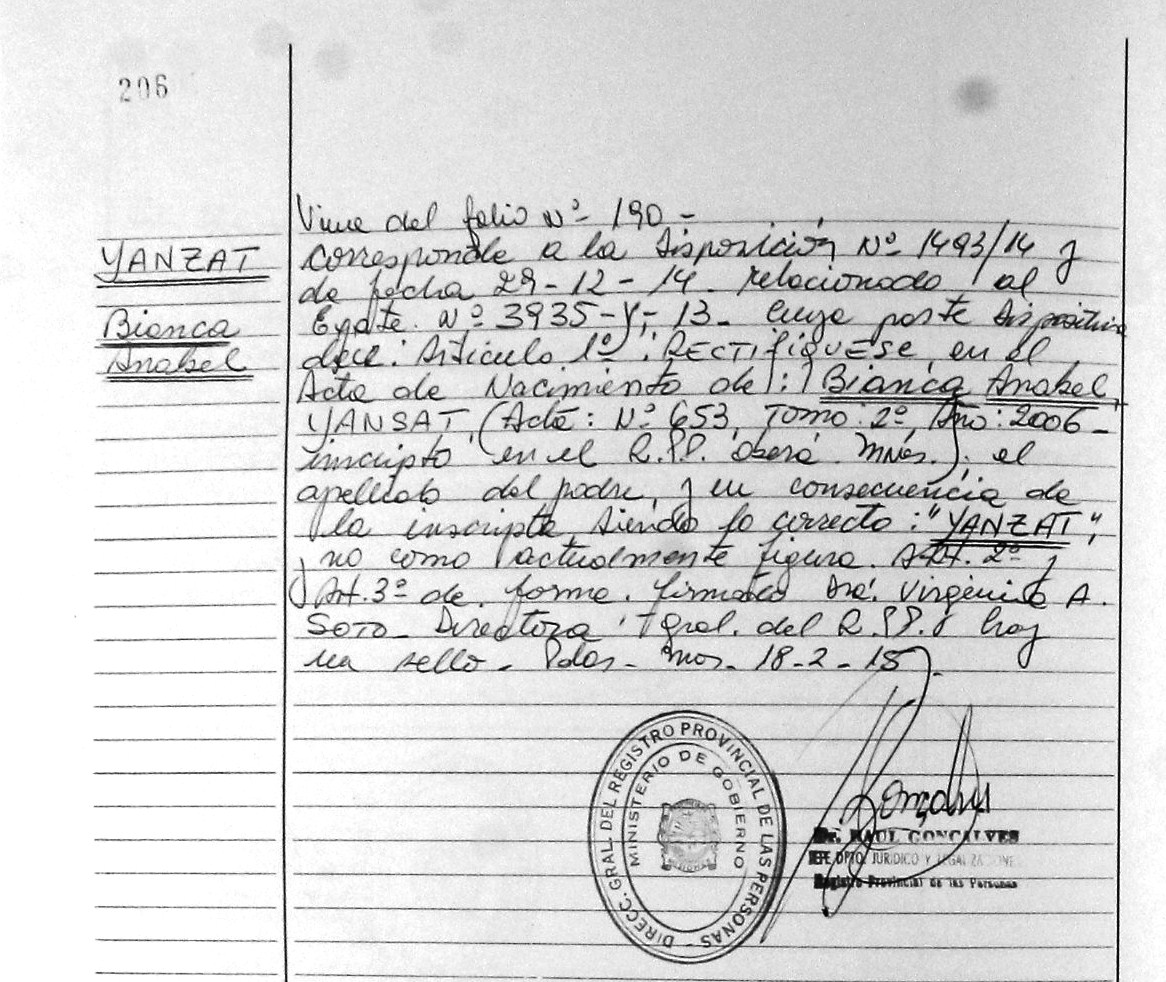 206
Viene del folio Nº 190 -
YANZAT
Bianca
Anabel
corresponde a la disposición Nº 1493/14 y
de fecha 29-12-14. relacionado al
Expte. Nº 3935-Y-13- cuya parte dispositiva
dice: Artículo 1º: RECTIFÍQUESE, en el
Acta de Nacimiento de: Bianca Anabel
YANSAT, (Acta: Nº 653, Tomo: 2º, Año: 2006-
inscripto en el R.PP. Oberá. Mnes.); el
apellido del padre, y en consecuencia de
la inscripta, siendo lo correcto: "YANZAT",
y no como actualmente figura. Art. 2º y
Art. 3º de forma. firmado Dra. Virginia A.
SOTO- Directora Gral. del R.PP. hay
un sello- Pdas- Mnes- 18-2-15
DIRECC. GRAL. DEL REGISTRO PROVINCIAL DE LAS PERSONAS -
MINISTERIO DE GOBIERNO
Dr. RAUL GONCALVES
JEFE DPTO. JURIDICO Y LEGALIZACIONE
Registro Provincial de las Personas